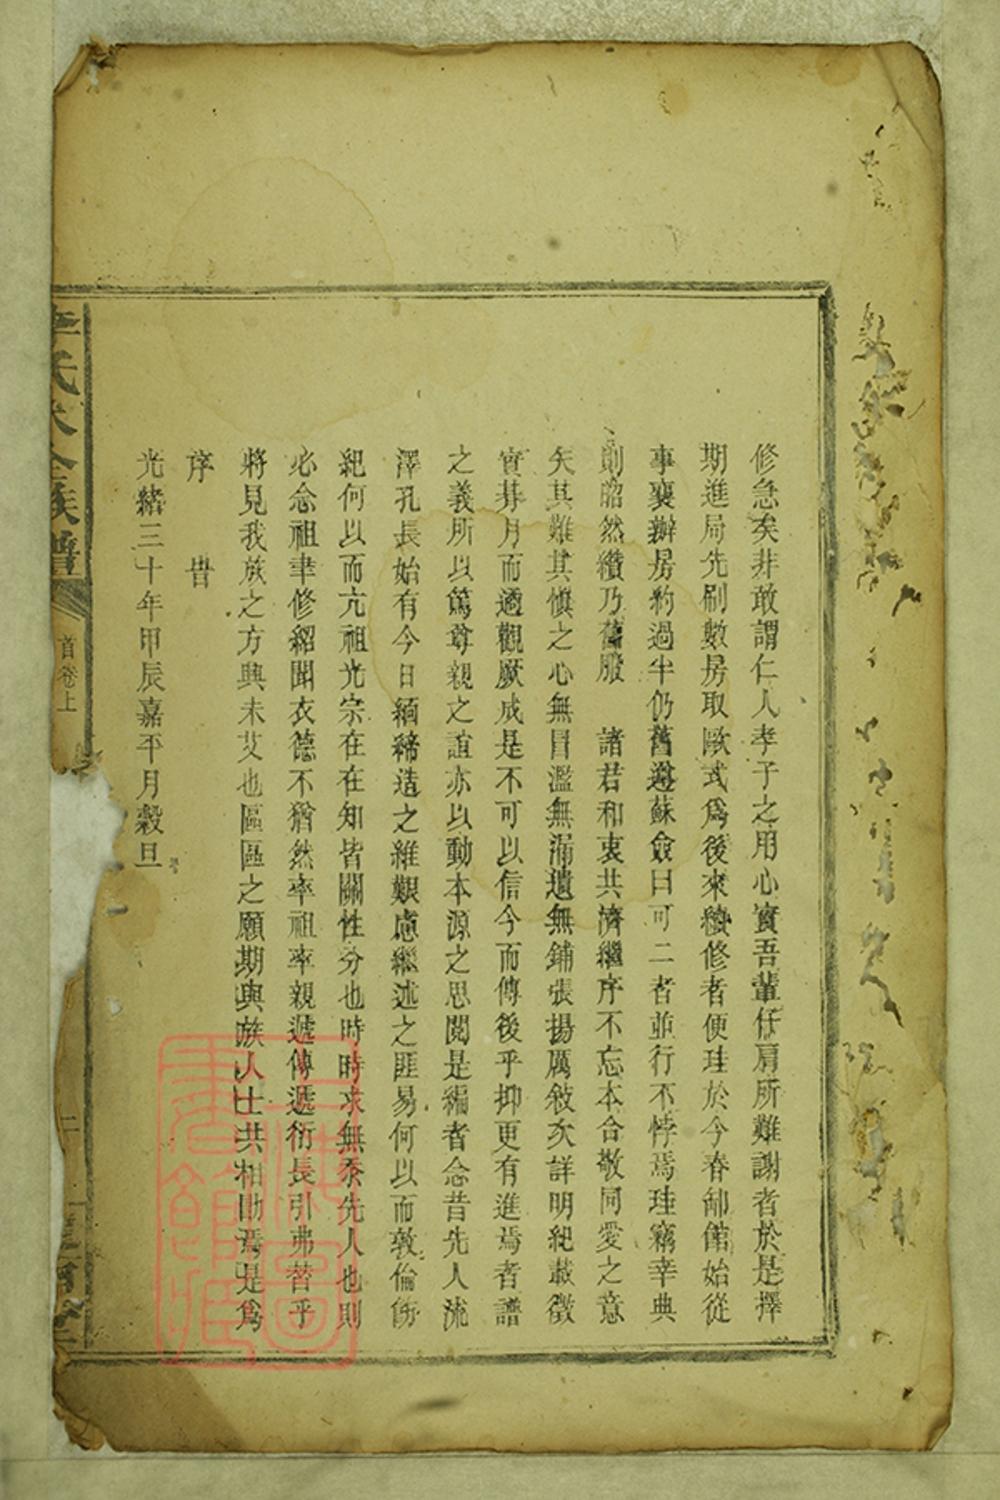 修急矣非敢謂仁人孝子之用心實吾輩仔肩所難謝者於是擇
期進局先刷數房取歐式爲後來續修者便珪於今春卸館始從
事襄辦房約過半仍舊遵蘇僉曰可二者並行不悖焉珪竊幸典
則昭然纘乃舊服 諸君和衷共濟繼序不忘本合敬同愛之意
矢其難其愼之心無冒濫無漏遺無鋪張揚厲敍次詳明紀載徵
實朞月而遹觀厥成是不可以信今而傳後乎抑更有進焉者譜
之義所以篤尊親之誼亦以動本源之思閱是編者念昔先人流
澤孔長始有今日緬締造之維艱慮繼述之匪易何以而敦倫飭
紀何以而亢祖光宗在在知皆關性分也時時求無忝先人也則
必念祖聿修紹聞衣德不猶然率祖率親遞傳遞衍長引弗替乎
將見我族之方興未艾也區區之願期與族人士共相勖焉是爲
序 旹
光緒三十年甲辰嘉平月穀旦
氏 族譜
首卷上
上海圖書館藏